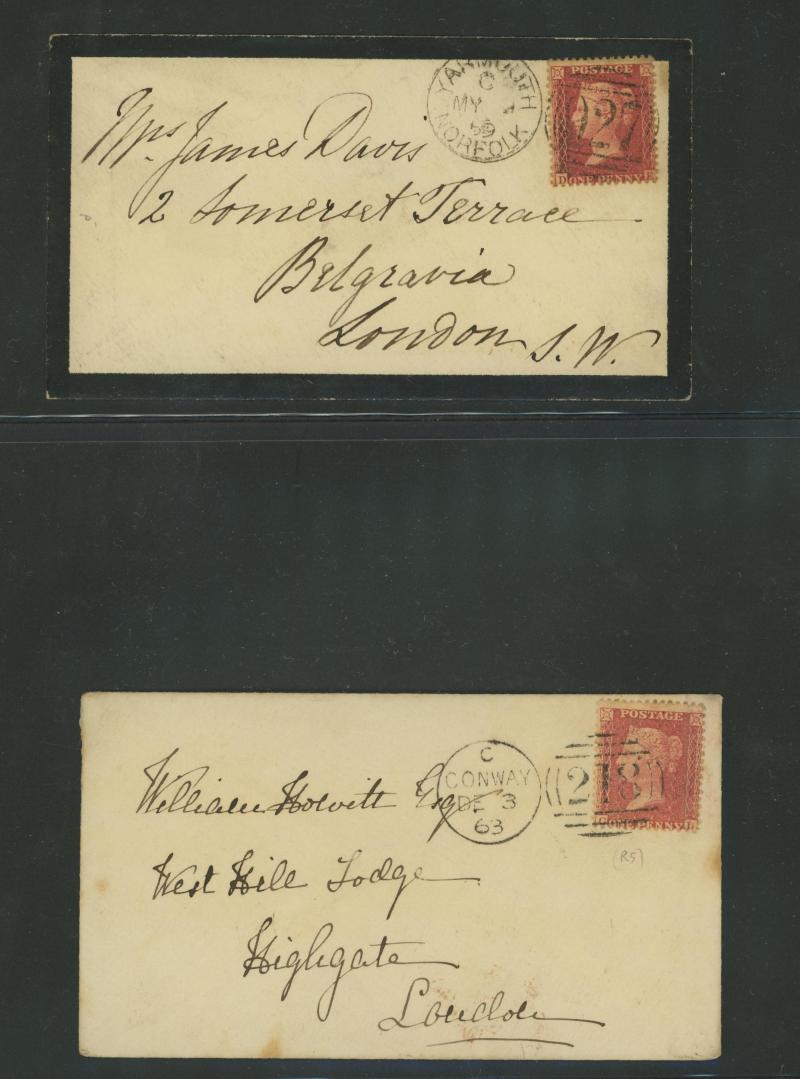 YARMOUTH
C
MY
59
NORFOLK
POSTAGE
927
D ONE PENNY E
Mrs. James Davis
2 Somerset Terrace
Belgravia
London S.W.
POSTAGE
C
CONWAY
DE 3
63
218
ONE PENNY
(R5)
William Howitt Esq
West Hill Lodge
Highgate
London